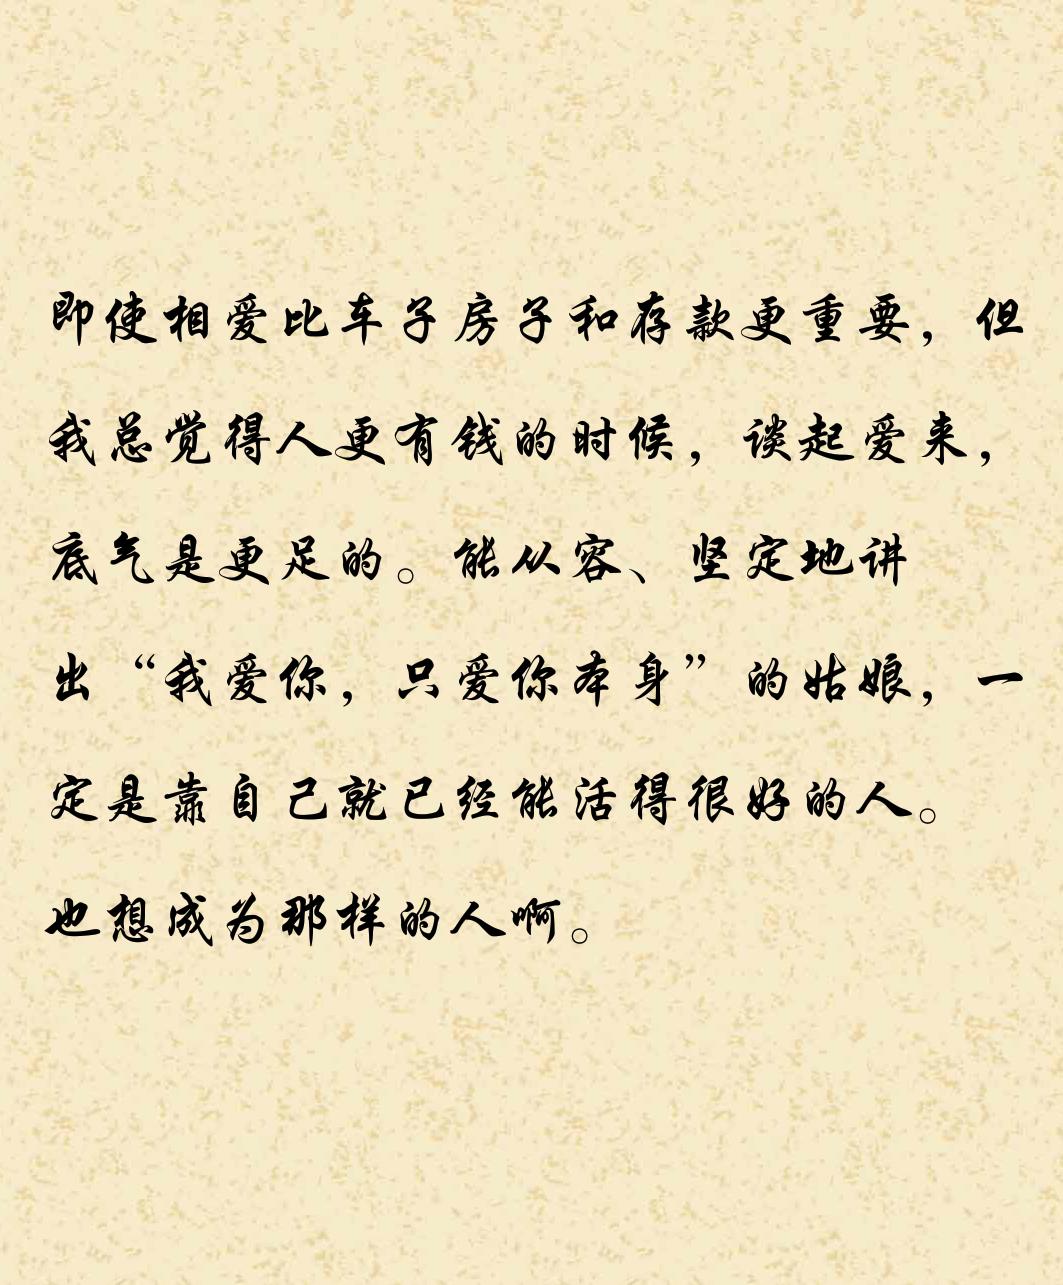 即使相爱比车子房子和存款更重要，但
我总觉得人更有钱的时候，谈起爱来，
底气是更足的。能从容、坚定地讲
出“我爱你，只爱你本身”的姑娘，一
定是靠自己就已经能活得很好的人。
也想成为那样的人啊。